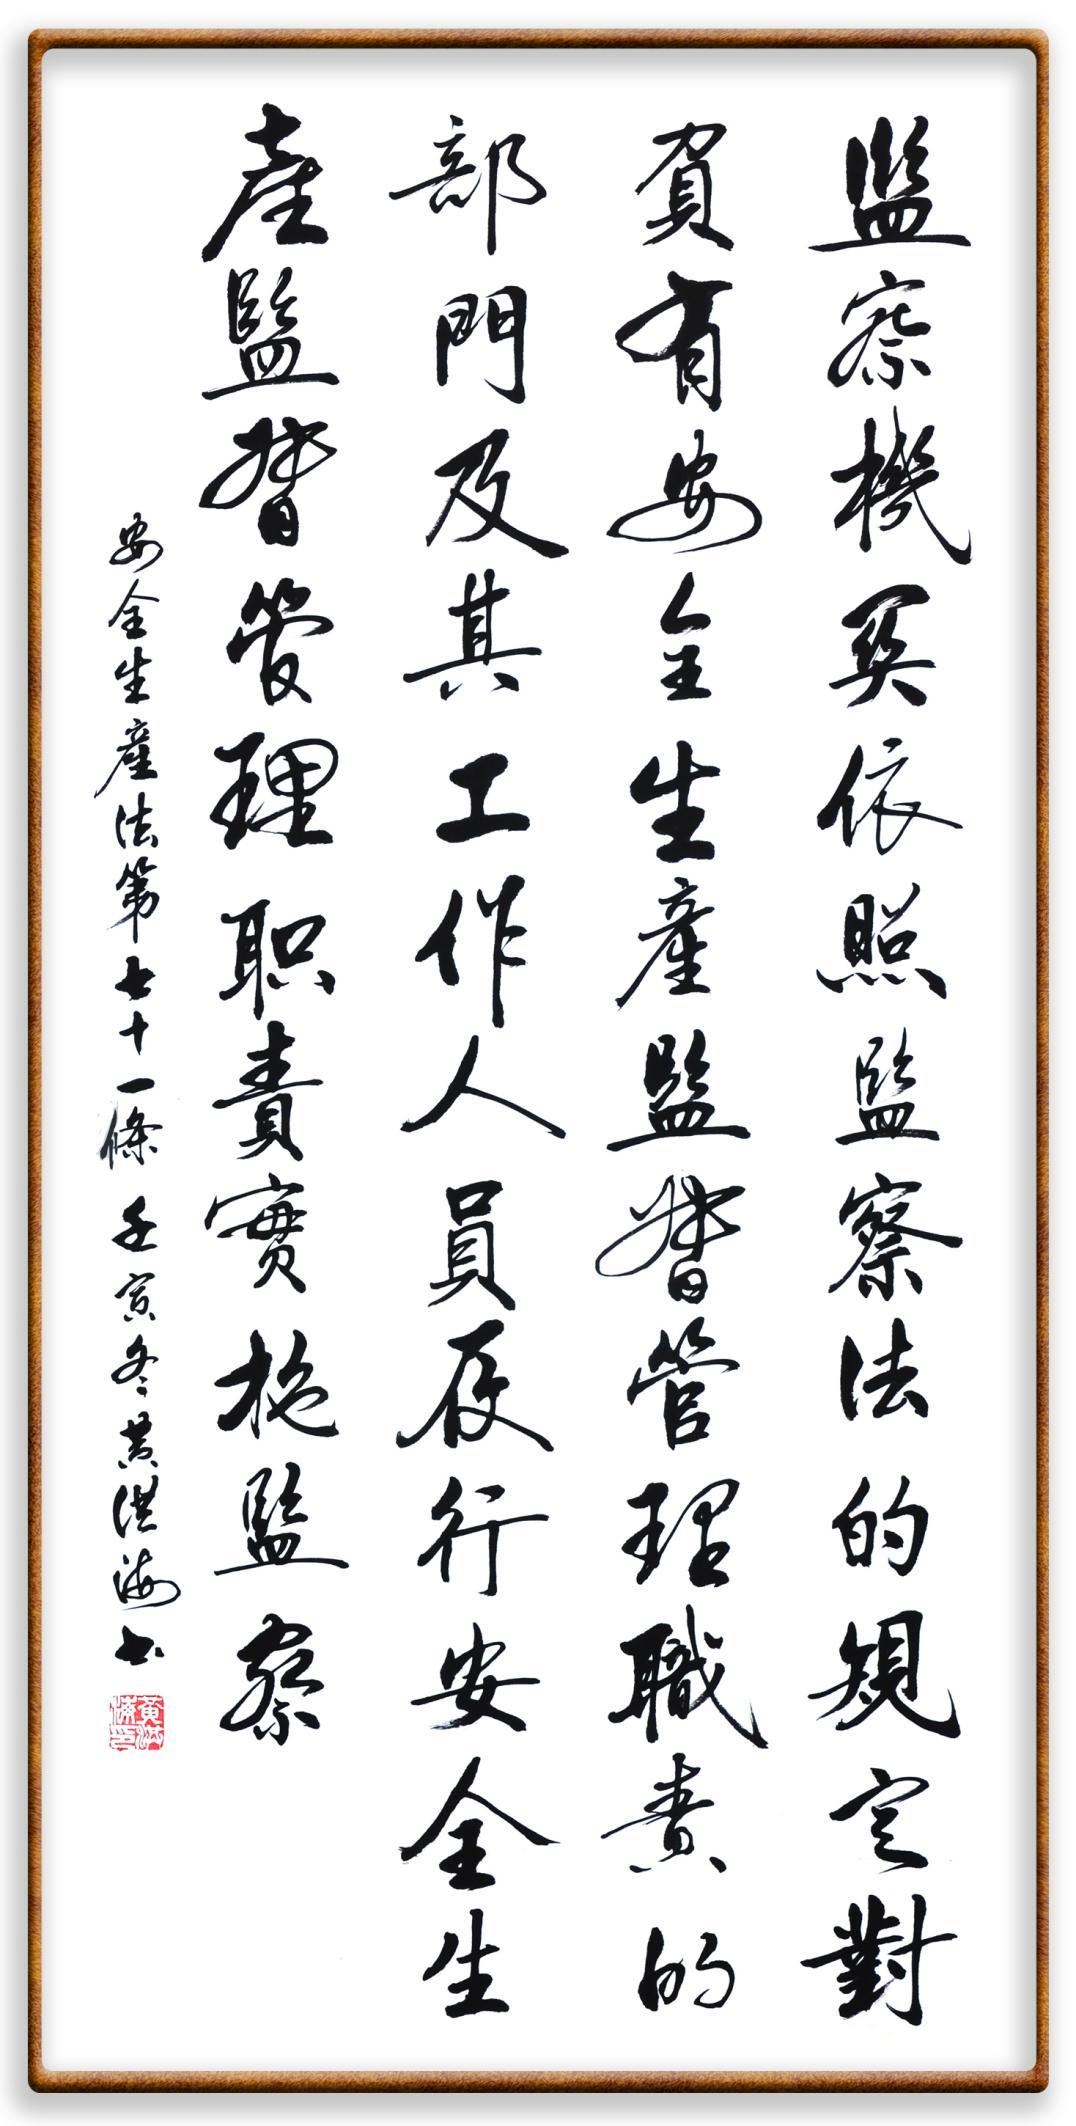 监察機関依照監察法的规定對
負有安全生產監督管理職責的
部門及其工作人員履行安全生
產監督管理职責實施監察
安全生產法第七十一條 壬寅冬黄洪海书